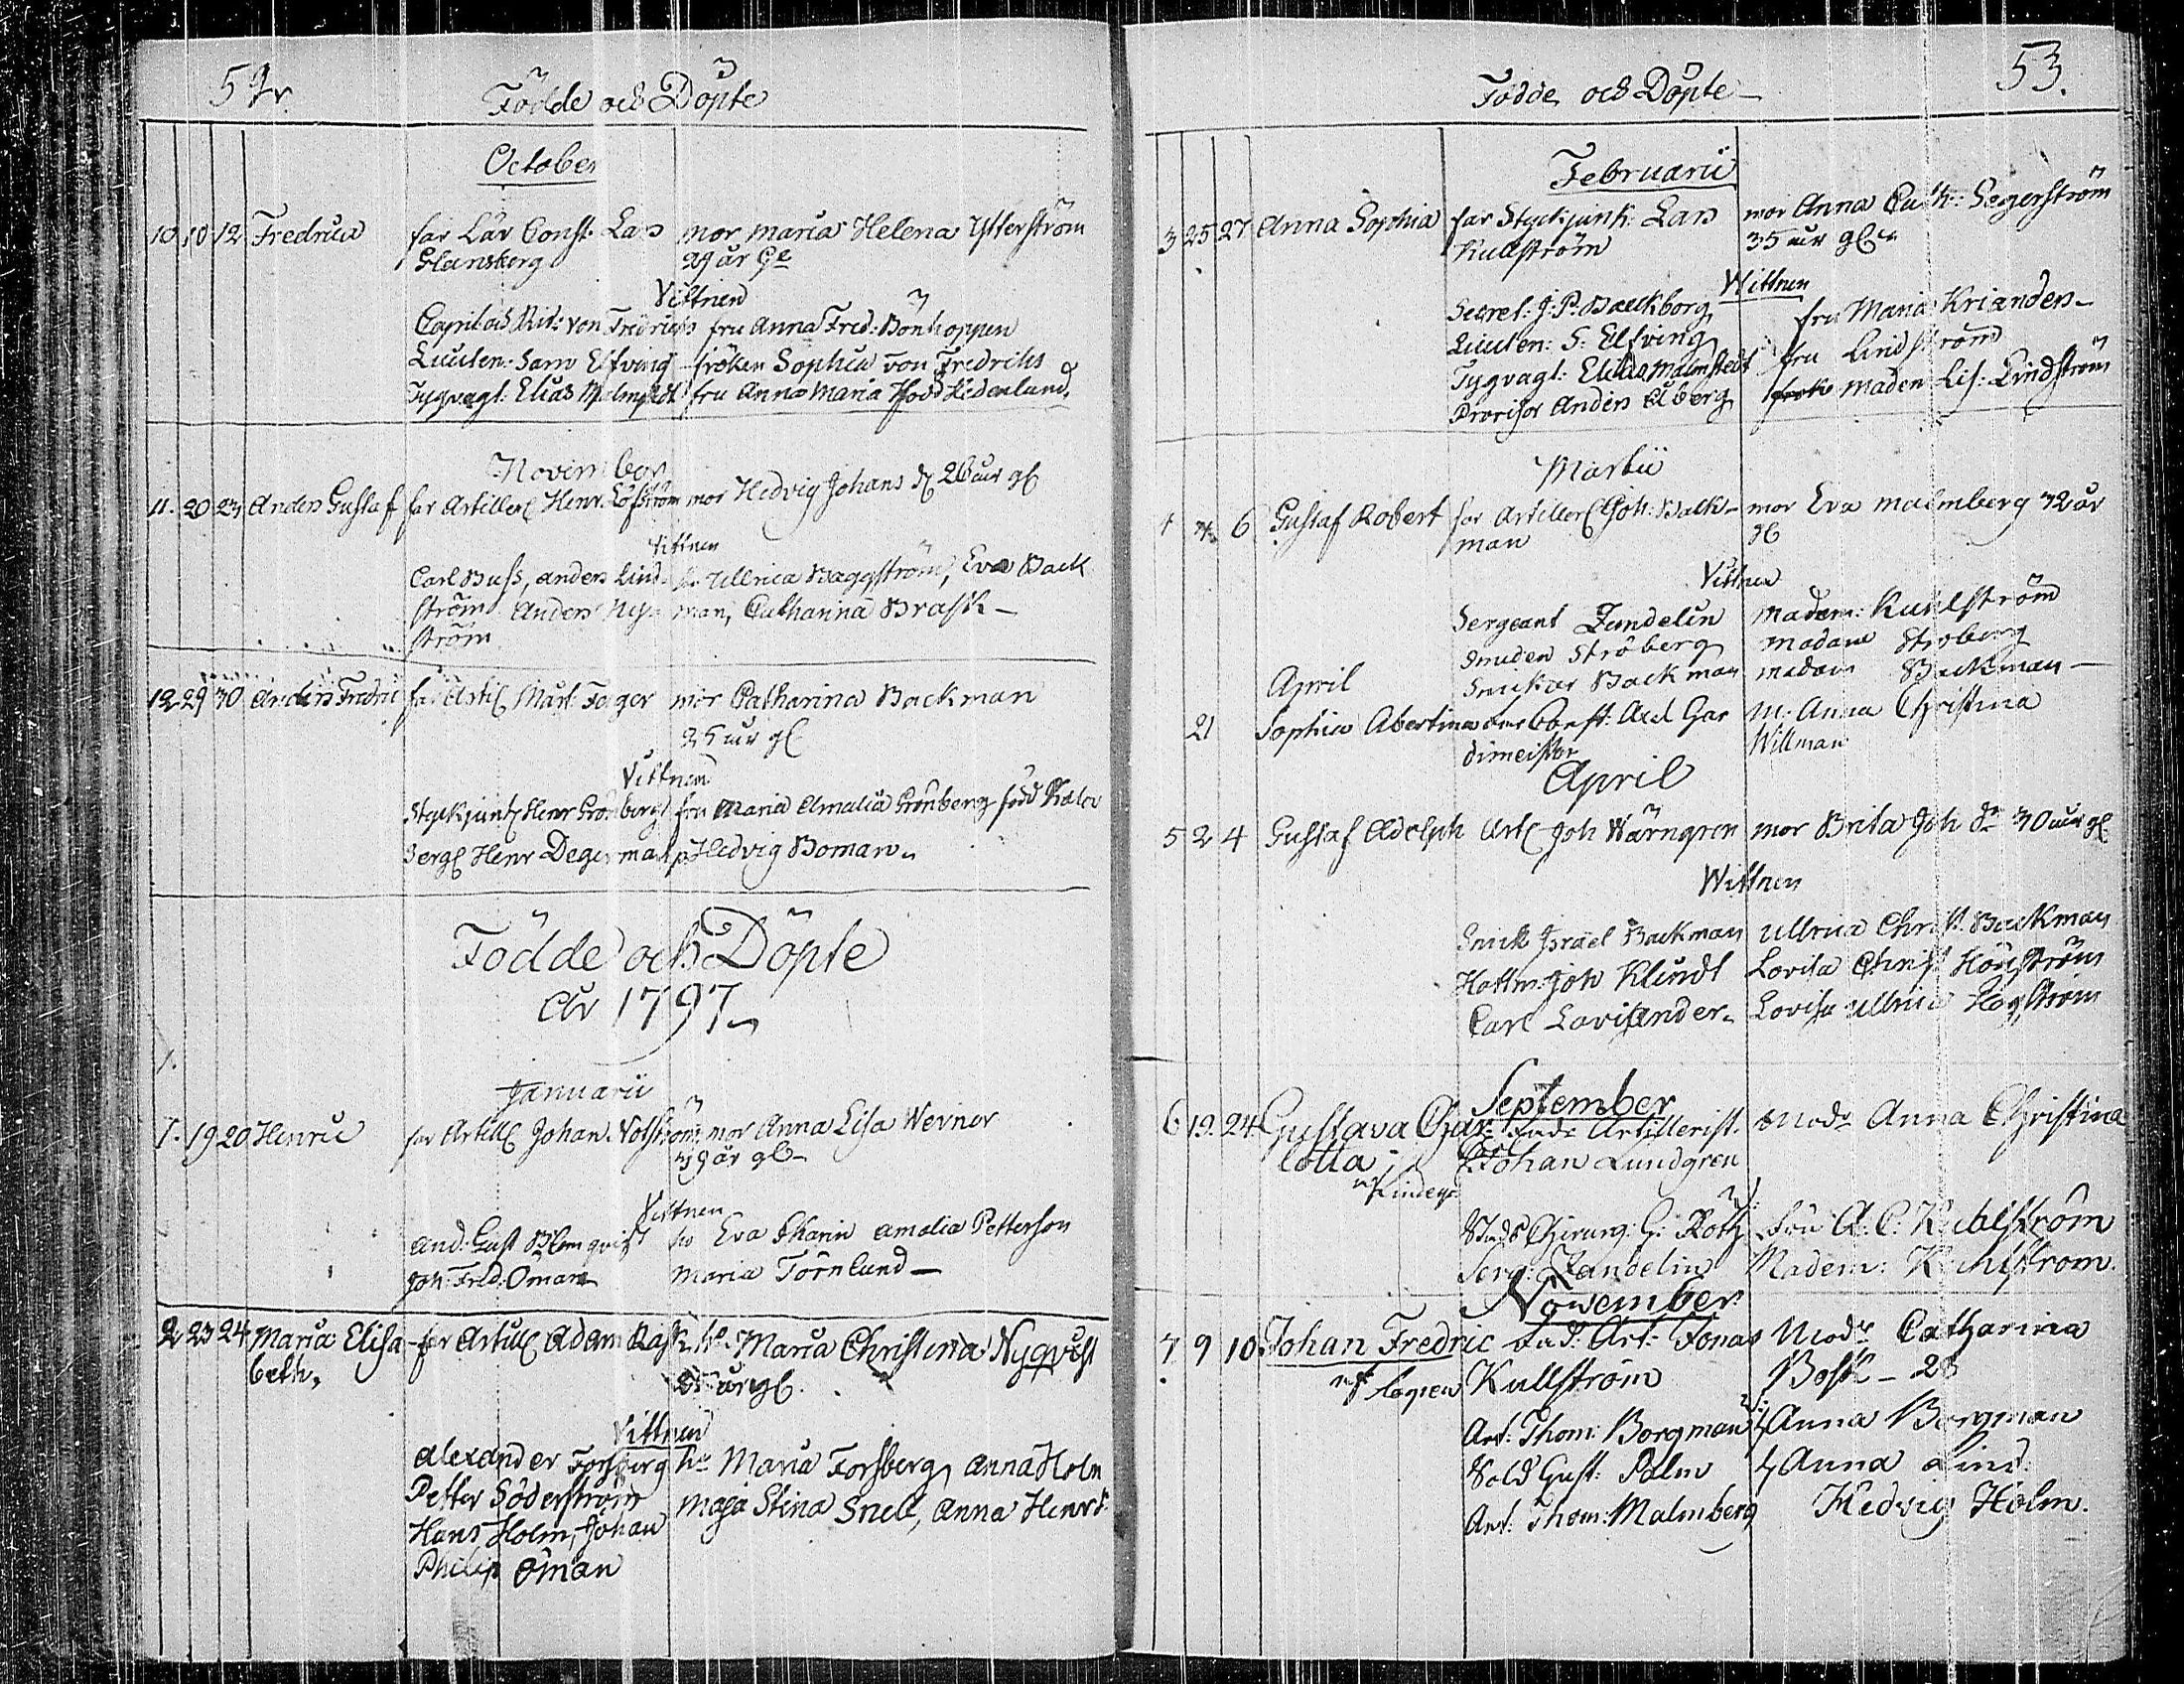 52.
Födde och Döpte
October
10 10 12 Fredrica far Lär Const. Lars mor maria Helena Ytterström
Glansberg 29 år Gl
Vittnen
Capit och Rid: von Fredrichs fru Anna Fred: Bonhoppen
Lieuten. Sam Elfving fröken Sophia von Fredrichs
Tygvagt: Elias Malmstedt fru Anna Maria född Hedenlund.
November
11. 20 23 Anders Gustaf far Artiller Henr. Löfström mor Hedvig Johans dr 26 år gl
Vittnen
Carl Buss, anders Lind- Ullrica Baggström, Eva Back
ström Anders Ny- man, Catharina Brask-
ström
12 29 30 Anders Fredric far Artil Mårt. Fager mor Catharina Backman
25 år gl
Vittnen
Styckjunk Henr Grönberg fru Maria Amalia Grönberg född
Serg Henr Degerman Hedvig Boman
Födde och Döpte
År 1797
1.
Januarii
1. 19 20 Henric far Artill Johan mor Anna Lisa Wernor
29 år gl-
Vittnen
And: Gust Blomqvist Eva Charin amalia Petterson
Joh: Fred: Öman Maria Törnlund-
2 23 24 Maria Elisa- far Artill Adam Rask Maria Christina Nyqvist
beth, 25 år gl.
Vittnen
Alexander Forsberg Maria Forsberg, Anna Holm
Petter Söderström Maja Stina Snell, Anna Henr dr
Hans Holm, Johan
Philip Öman
53.
Födde och Döpte-
Februarii
3 25 27 Anna Sophia far Styckjunk: Lars mor Anna Cath: Segerström
Kullström 35 år gl
Wittnen
Secret: J: P: Backborg fru Maria Krianden-
Lieuten: S: Elfving fru Lindström
Tygvagt: Elias Malmstedt maden Lis: Lindström
Provisor Anders Åberg
Martii
4 6 Gustaf Robert far Artiller Joh: Back- mor Eva Malmberg 32 år
man gl
Vittnen
Sergeant Zandelin Madem: Kuhlström
Smeden Ströberg Madame Ströberg
April Snickar Backman madam Backman-
21 Sophia Abertina far Const: Axel Gar M: Anna Christina
dimeister Willman
April
5 2 4 Gustaf Adolph Art Joh Wärngren mor Brita Joh dr 30 år gl
Wittnen
Snick Israel Backman Ullrica Christ. Backman
Hattm: Joh Klindt Lovisa Christ Högström
Carl Lovisander. Lovisa Ullrica Högström
September
6 19. 24. Gustava Char- Fad: Artillerist. Modr Anna Christina
lotta Johan Lundgren
Stads Chirurg: G: Roth Fru A: C: Kuhlström
Serg: Zandelin Madem: Kuhlström.
November
7 9 10 Johan Fredric Fad: Art: Jonas Modr Catharina
Kullström Bosk - 28
Art: Thom: Borgman Anna Borgman
Sold Gust: Palm Anna Lind:
Art: Thom: Malmberg Hedvig Holm.